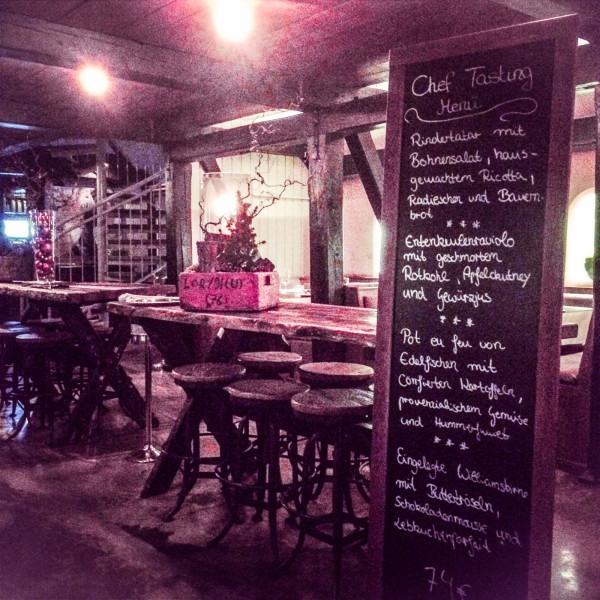 Chef Tasting
Menü
Rindertatar mit
Bohnensalat, haus-
gemachtem Ricotta,
Radieschen und Bauern-
brot
***
Entenkeulenraviolo
mit geschmortem
Rotkohl, Apfelchutney
und Gewürzjus
***
Pot eu feu von
Edelfischen mit
Confierten Kartoffeln,
provenzialischem Gemüse
und Hummerfumet
***
Eingelegte Williamsbirne
mit Butterbröseln,
Schokoladenmousse und
Lebkuchenparfait
74€